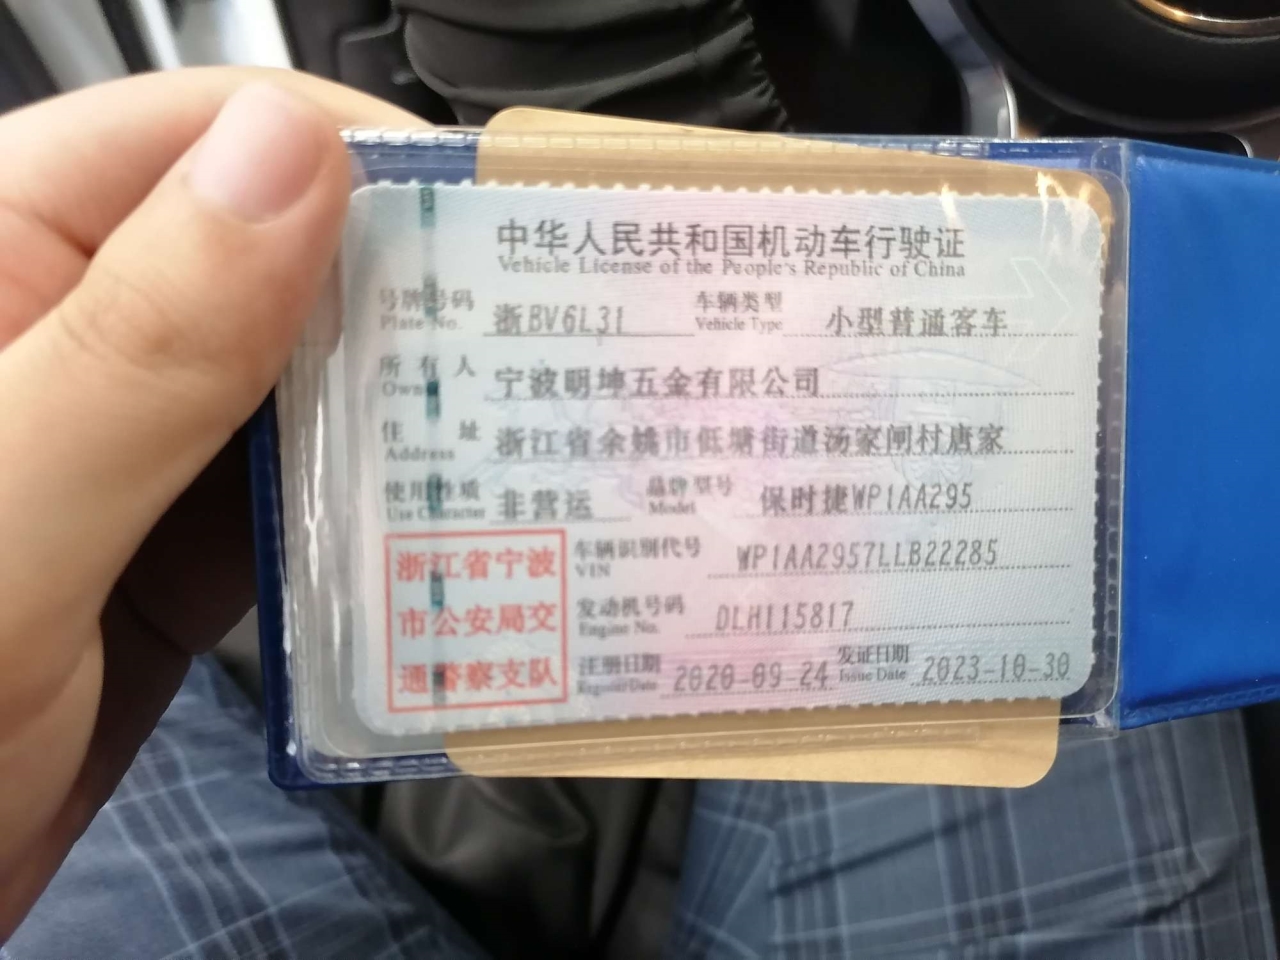 中华人民共和国机动车行驶证
Vehicle License of the People's Republic of China
号牌号码 浙BV6L31 车辆类型 小型普通客车
Plate No. Vehicle Type
所有人 宁波明坤五金有限公司
Owner
住址 浙江省余姚市低塘街道汤家闸村唐家
Address
使用性质 非营运 品牌型号 保时捷WP1AA295
Use Character Model
浙江省宁波
市公安局交
通警察支队
车辆识别代号 WP1AA2957LLB22285
VIN
发动机号码 DLH115817
Engine No.
注册日期 2020-09-24 发证日期 2023-10-30
Register Date Issue Date